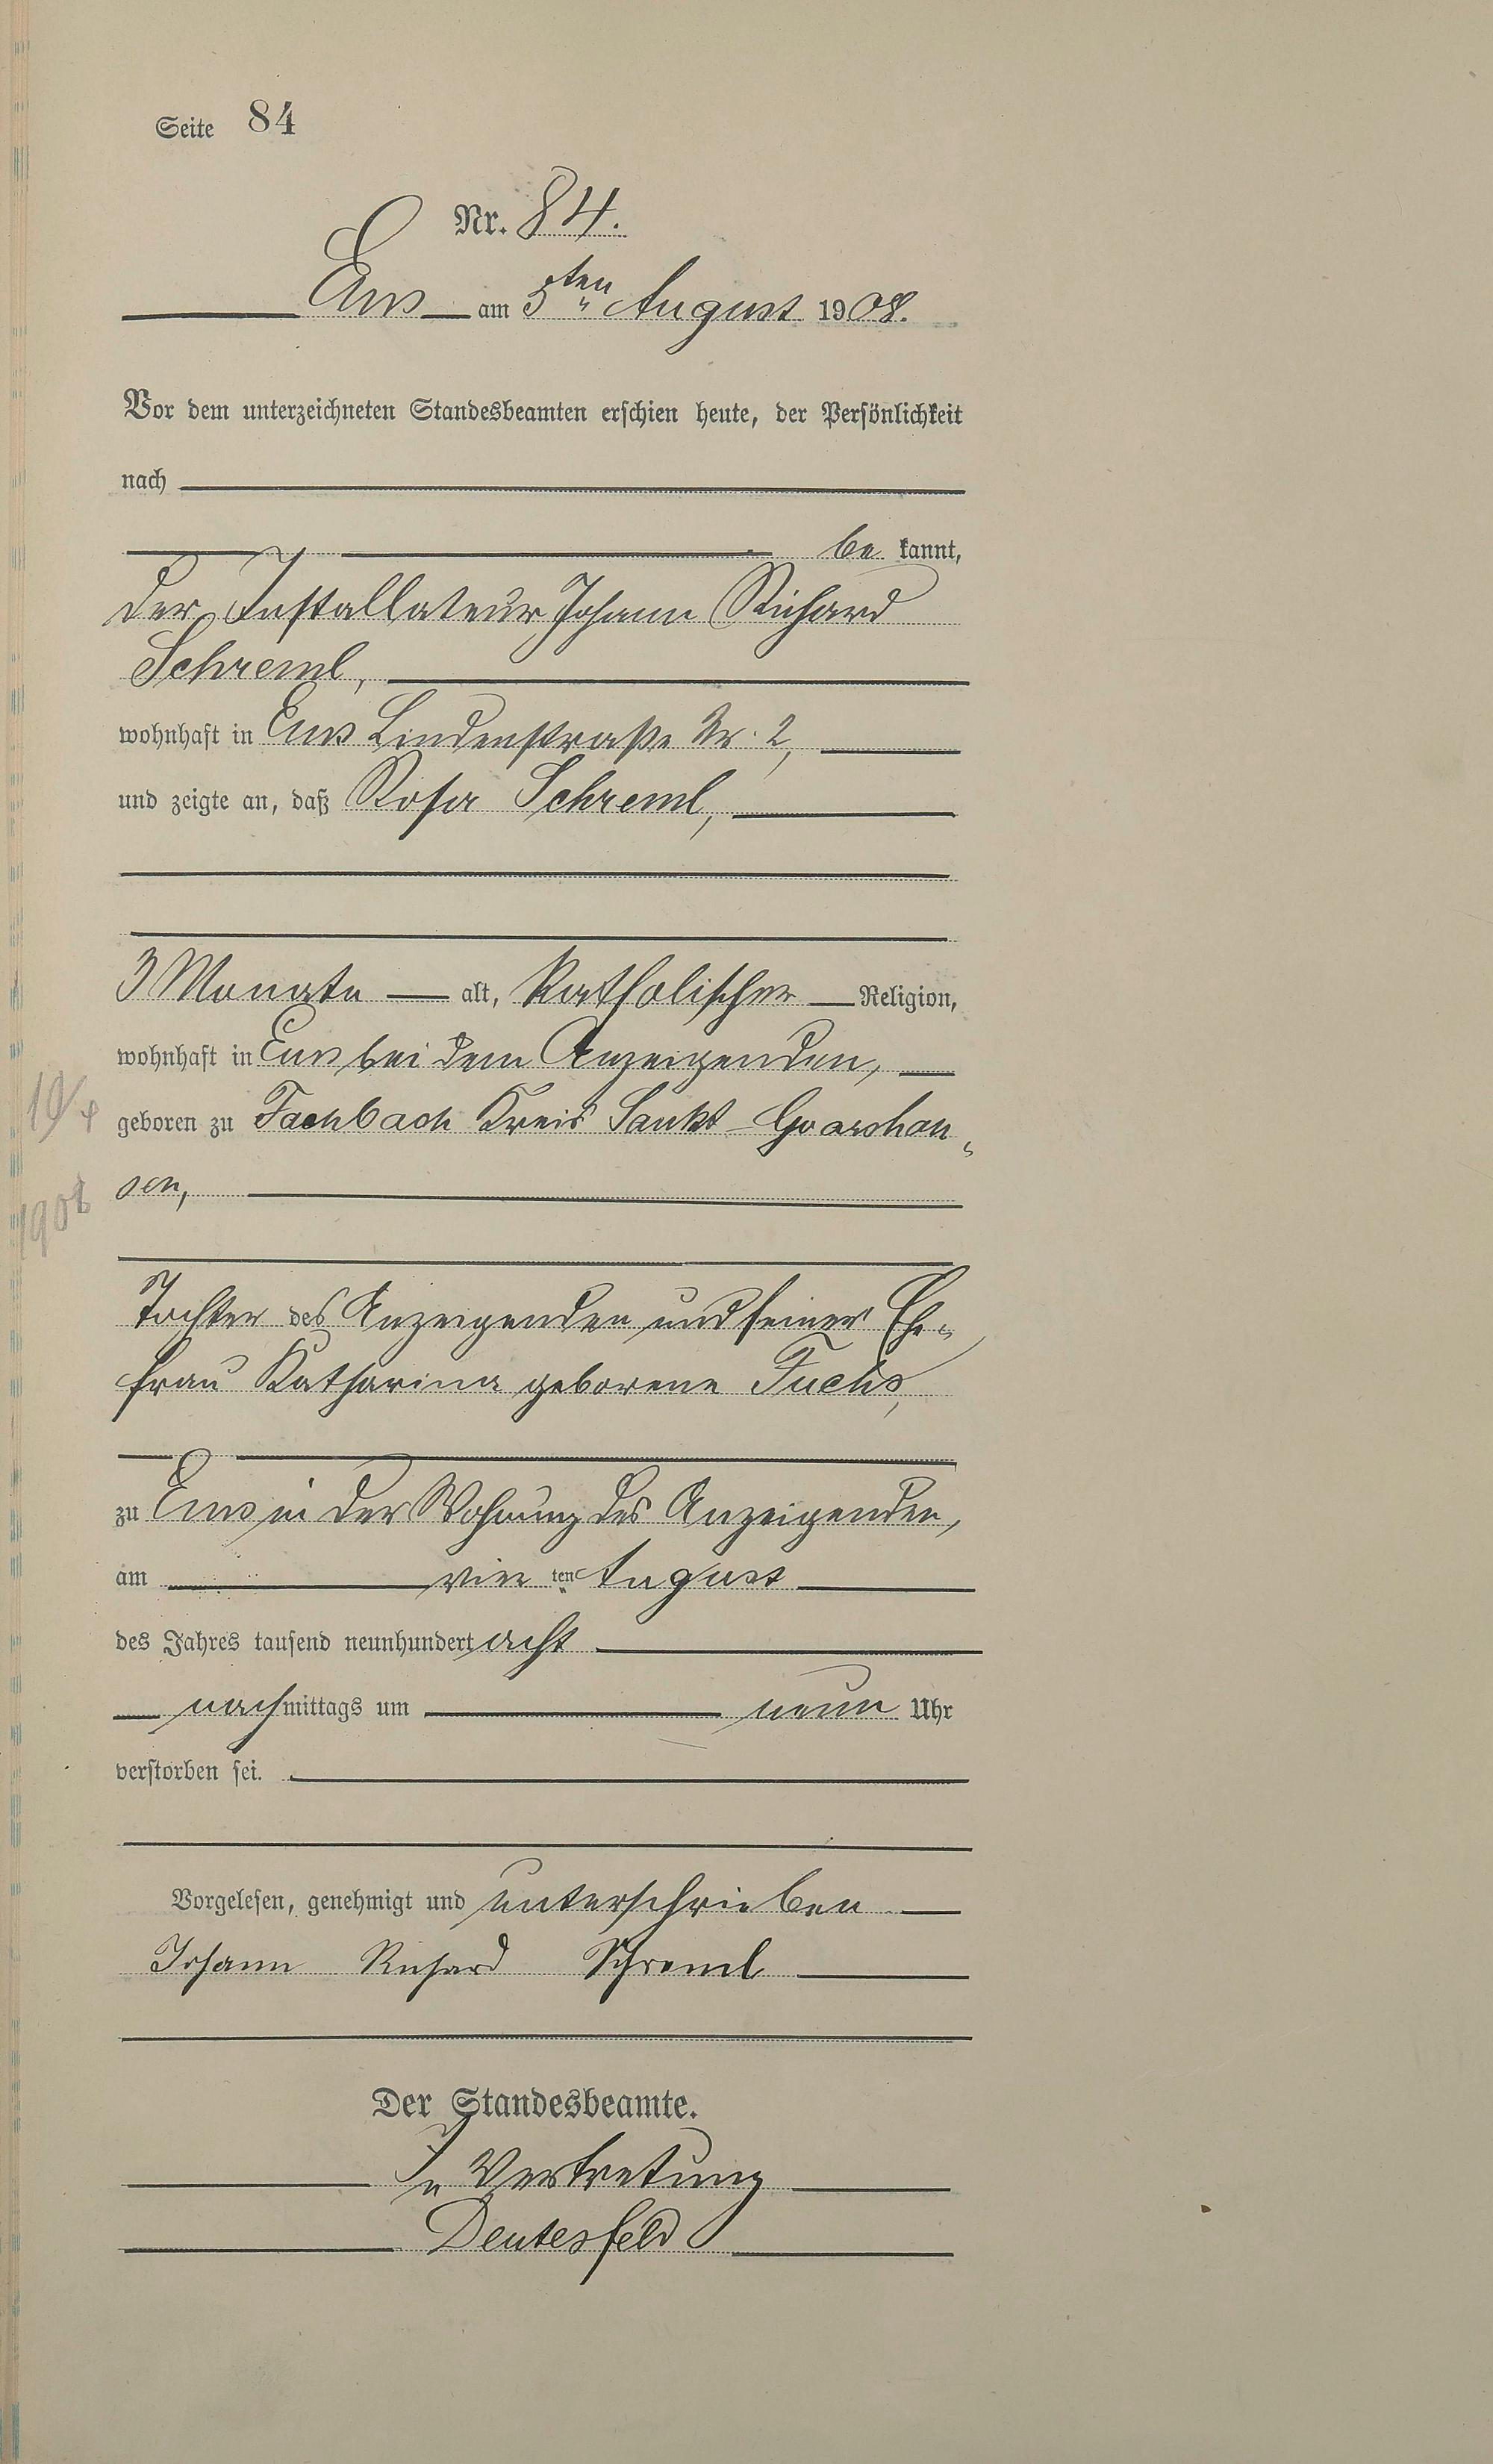 Seite 84
Nr. 84.
Ems am 5ten August 1908.
Vor dem unterzeichneten Standesbeamten erschien heute, der Persönlichkeit
nach
be kannt,
der Installateur Johann Richard
Schreml,
wohnhaft in Ems Lindenstraße Nr. 2,
und zeigte an, daß Rosa Schreml,
3 Monate alt, katholischer Religion,
wohnhaft in Ems bei dem Anzeigenden,
geboren zu Fachbach Kreis Sankt-Goarshau-
sen,
1908
Tochter des Anzeigenden und seiner Ehe-
frau Katharina geborene Fuchs,
zu Ems in der Wohnung des Anzeigenden,
am vier ten August
des Jahres tausend neunhundert acht
nachmittags um neun Uhr
verstorben sei.
Vorgelesen, genehmigt und unterschrieben
Johann Richard Schreml
Der Standesbeamte.
In Vertretung
Deutesfeld